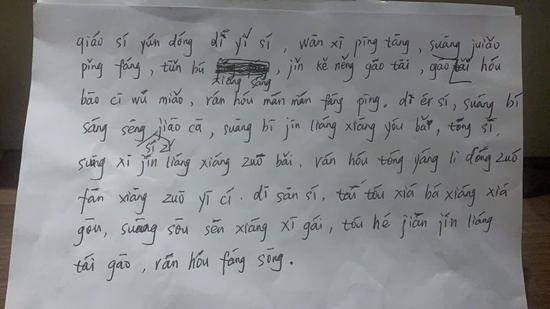 qiáo sí yún dóng dǐ yī sí, wān xī píng tāng, suāng juiǎo
pīng fáng, tūn bú xiāng sāng, jǐn kě néng gāo tāi, gāo tǎi hóu
bāo cī wǔ miǎo, rán hóu mán mán fáng píng. dǐ ér sí, suáng bí
sáng sēng jiāo cā, suāng bī jín liáng xiáng yóu bǎi, tóng sí
sí zī
suāng xī jǐn liáng xiáng zuǒ bǎi. rán hóu tóng yáng lì dóng zuó
fān xiāng zuō yī cí. dī sān sí, tái tóu xiá bá xiáng xiá
gōu, suāng sōu sēn xiāng xī gái, tóu hé jiān jín liáng
tái gāo, rán hóu fáng sōng.